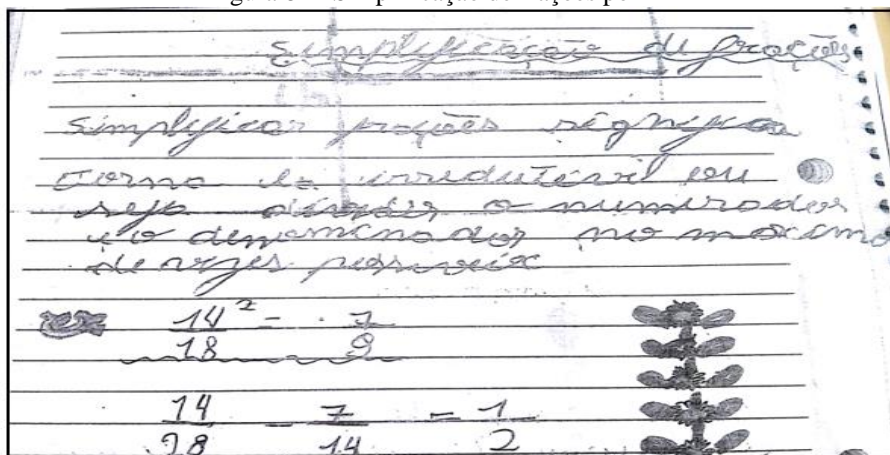 simplificação de frações
simplificar frações significa
torna la irredutével ou
seja dividir o numerador
e o denominador no máximo
de vezes possíveis
ex 14² = 7
18 9
14 = 7 = 1
28 14 2